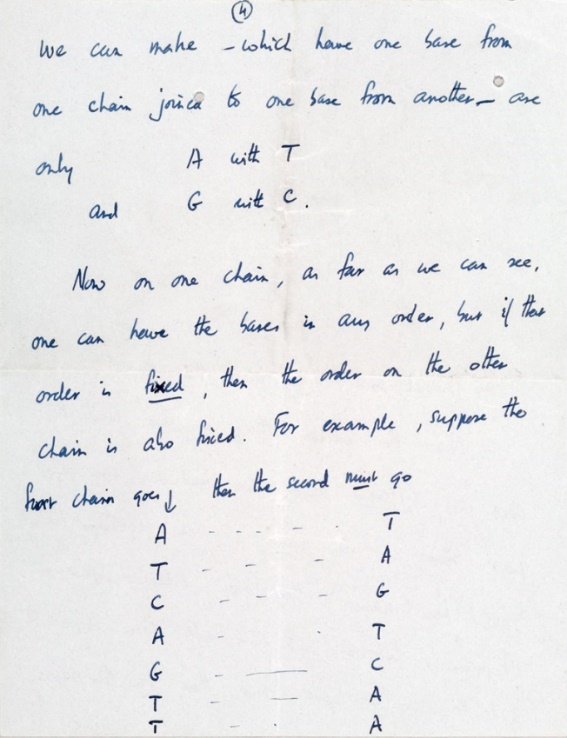 4
we can make - which have one base from
one chain joined to one base from another - are
only A with T
and G with C.
Now on one chain, as far as we can see,
one can have the bases in any order, but if their
order is fixed, then the order on the other
chain is also fixed. For example, suppose the
first chain goes ↓ then the second must go
A - - - - T
T - - - A
C - - - - G
A - - T
G - — C
T - - - A
T - - A